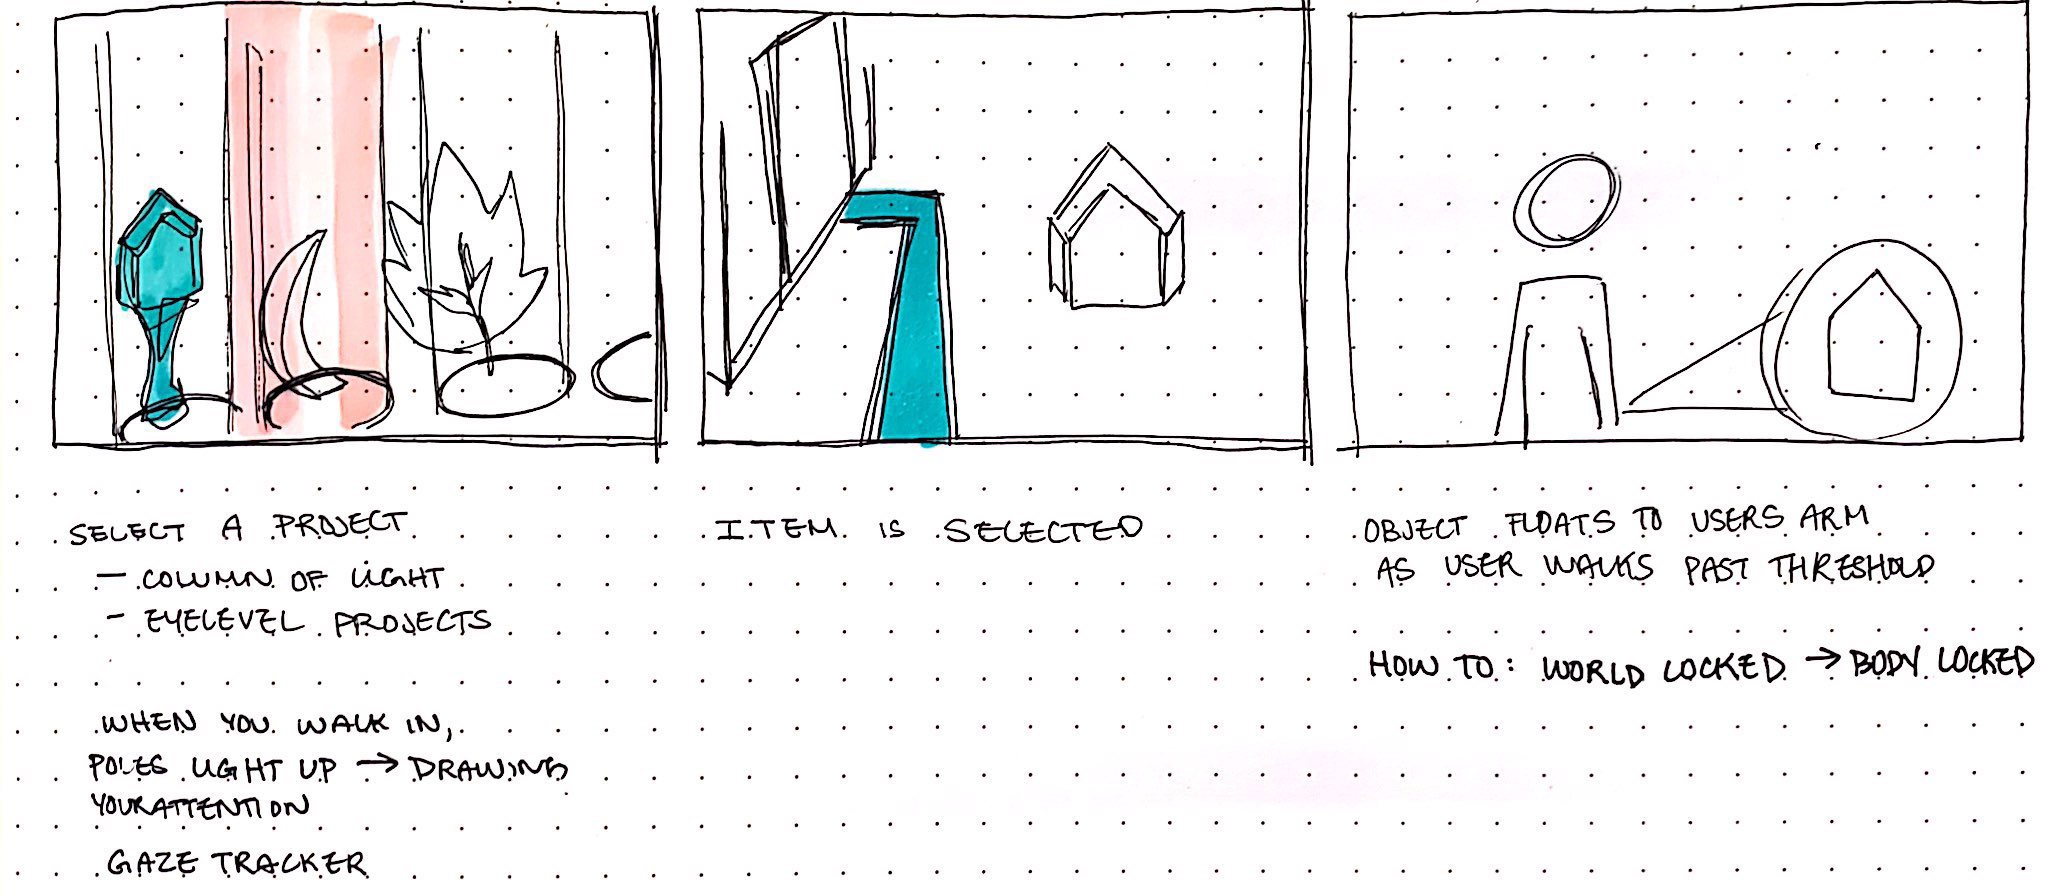 SELECT A PROJECT
— COLUMN OF LIGHT
- EYELEVEL PROJECTS
WHEN YOU WALK IN,
POLES LIGHT UP → DRAWING
YOUR ATTENTION
GAZE TRACKER
ITEM IS SELECTED
OBJECT FLOATS TO USERS ARM
AS USER WALKS PAST THRESHOLD
HOW TO: WORLD LOCKED → BODY LOCKED